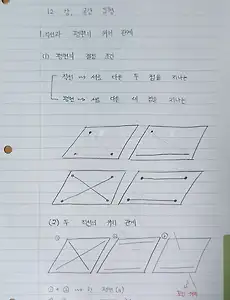 12 점, 공간 도형
1. 직선과 평면의 위치 관계
(1) 평면의 결정 조건
직선 → 서로 다른 두 점을 지나는
평면 → 서로 다른 세 점을 지나는
(2) 두 직선의 위치 관계
① ② ③
① + ② → 한 평면